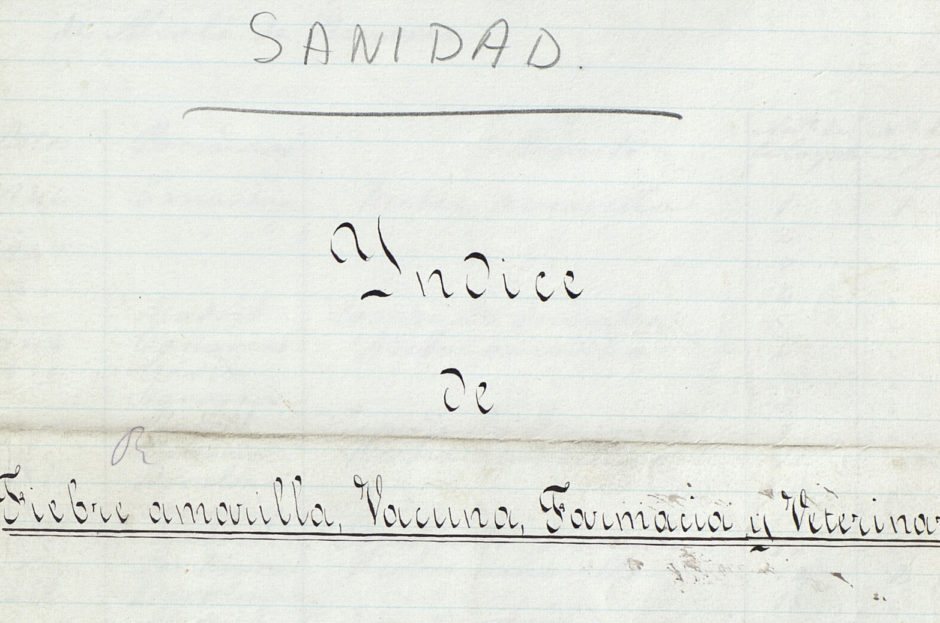 SANIDAD.
Yndice
de
Fiebre amarilla, Vacuna, Farmacia y Veterinar